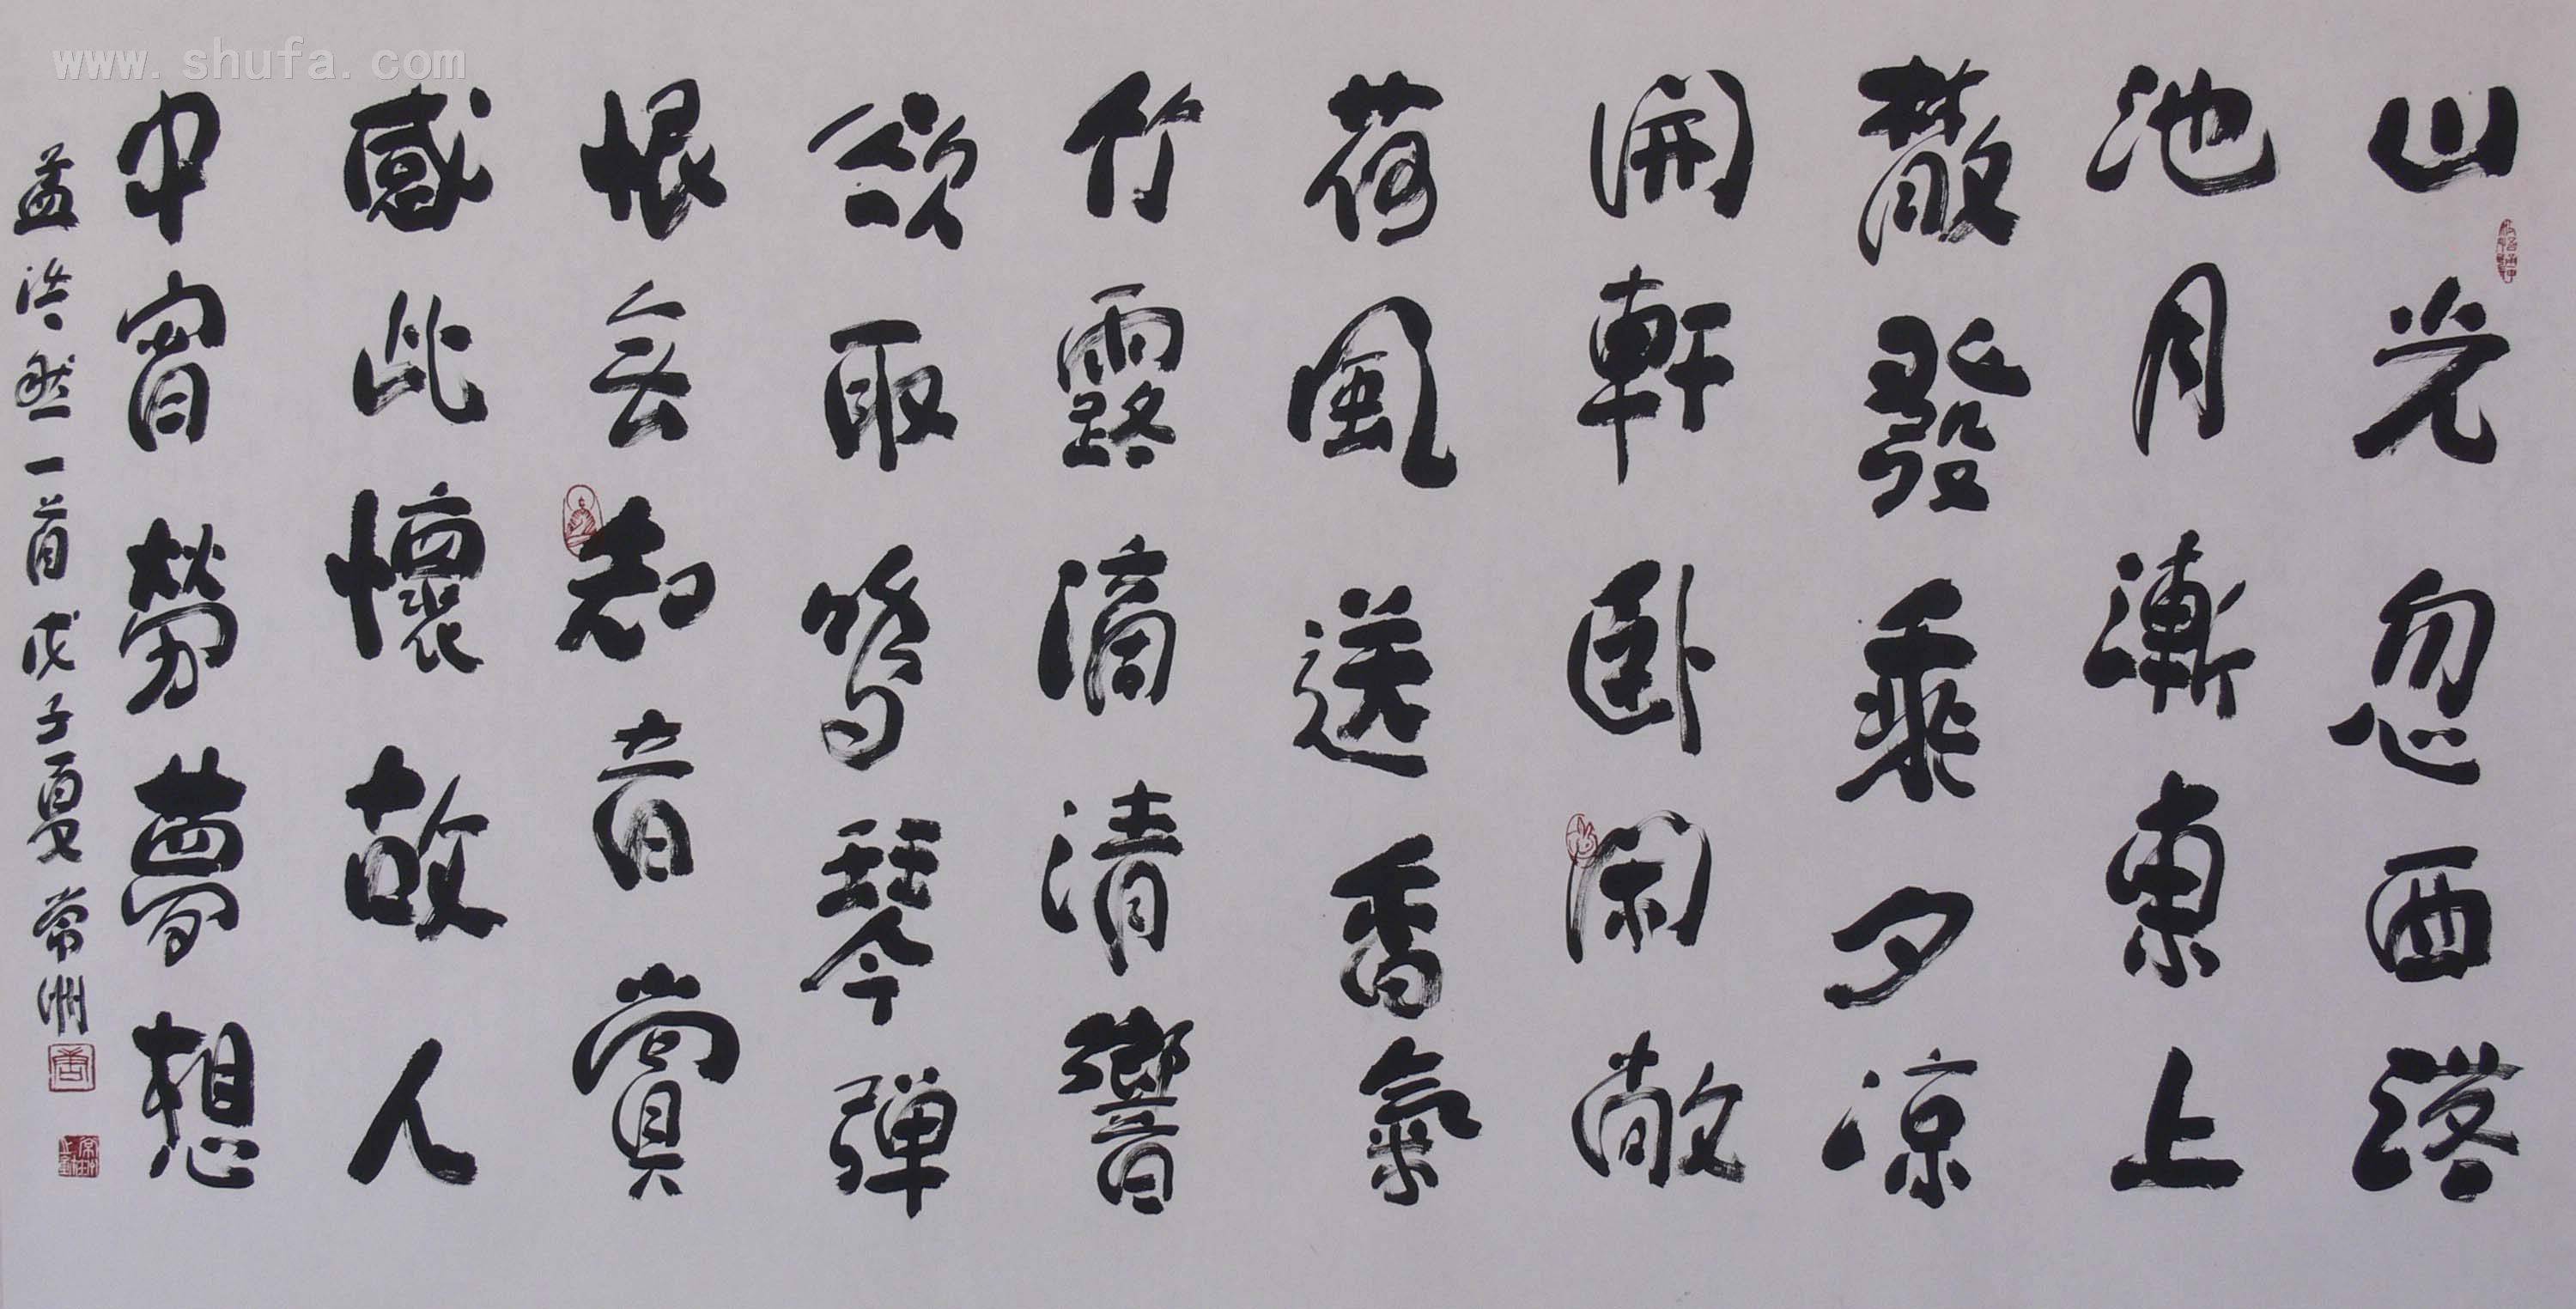 www.shufa.com
山光忽西落
池月漸東上
散發乘夕凉
開軒卧閑敞
荷風送香氣
竹露滴清響
欲取鳴琴彈
恨無知音賞
感此懷故人
中宵勞夢想
孟浩然一首戊子夏常洲